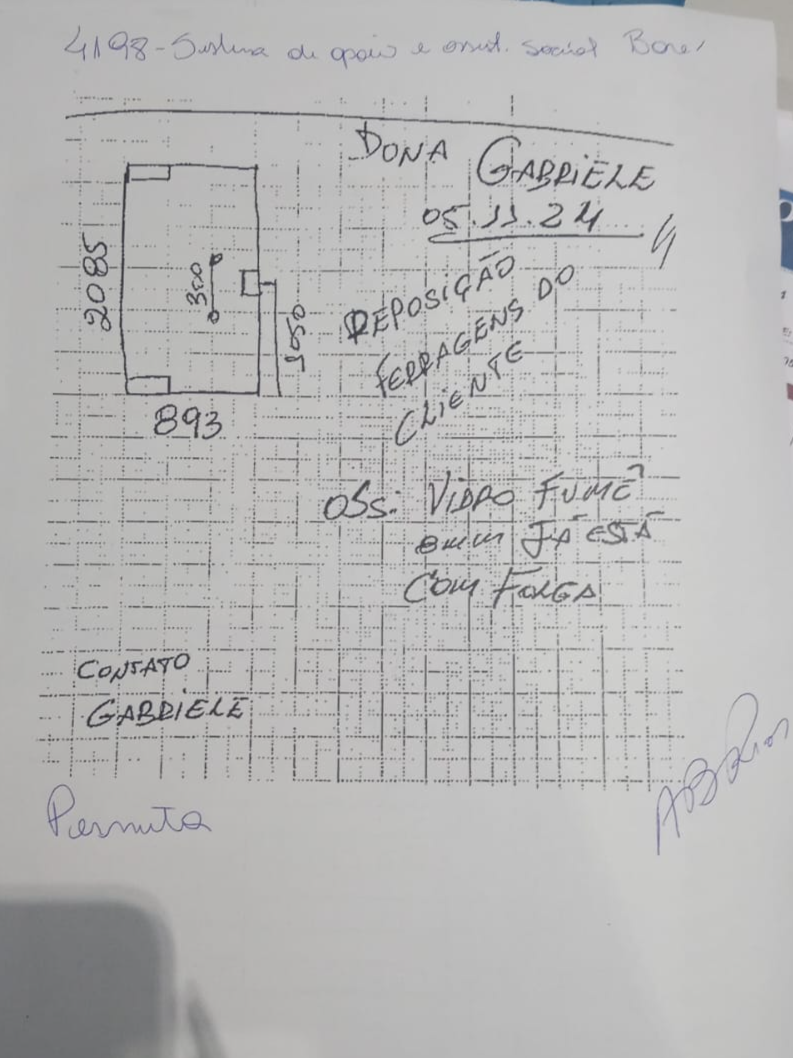 4198-Sistema de apoio e assist. social
DONA GABRIELE
05.11.24
2085
300
1050
893
REPOSIÇÃO
FERRAGENS DO
CLIENTE
OBS: VIDRO FUMÊ
8mm JÁ ESTÁ
COM FOLGA
CONTATO
GABRIELE
Permuta